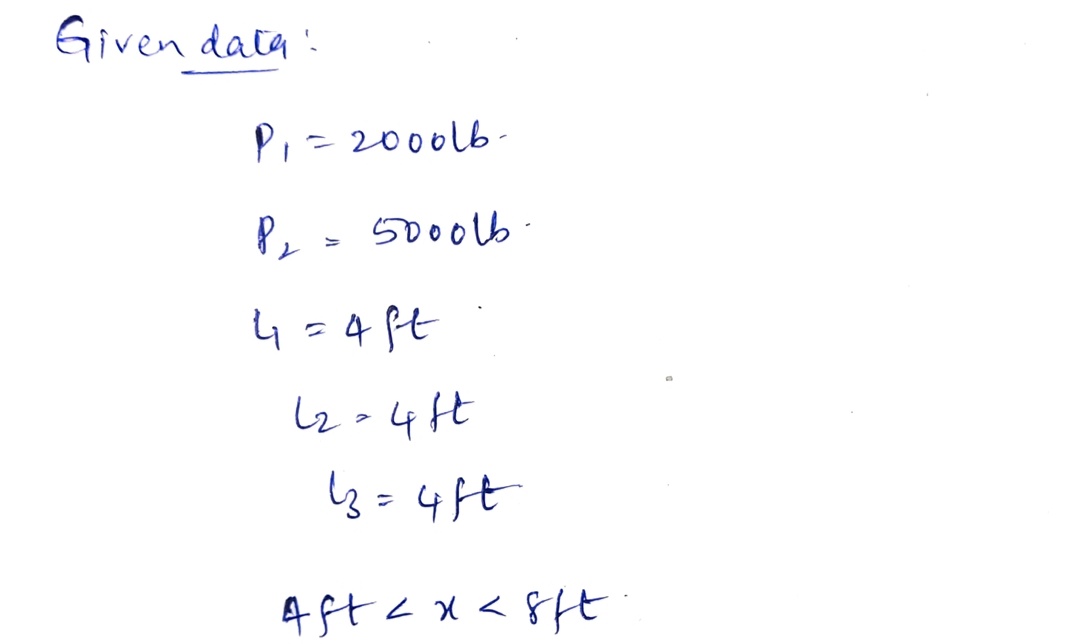 Given data:
P₁ = 2000lb.
P₂ = 5000lb.
L₁ = 4 ft
L₂ = 4 ft
L₃ = 4 ft
4 ft < x < 8 ft.